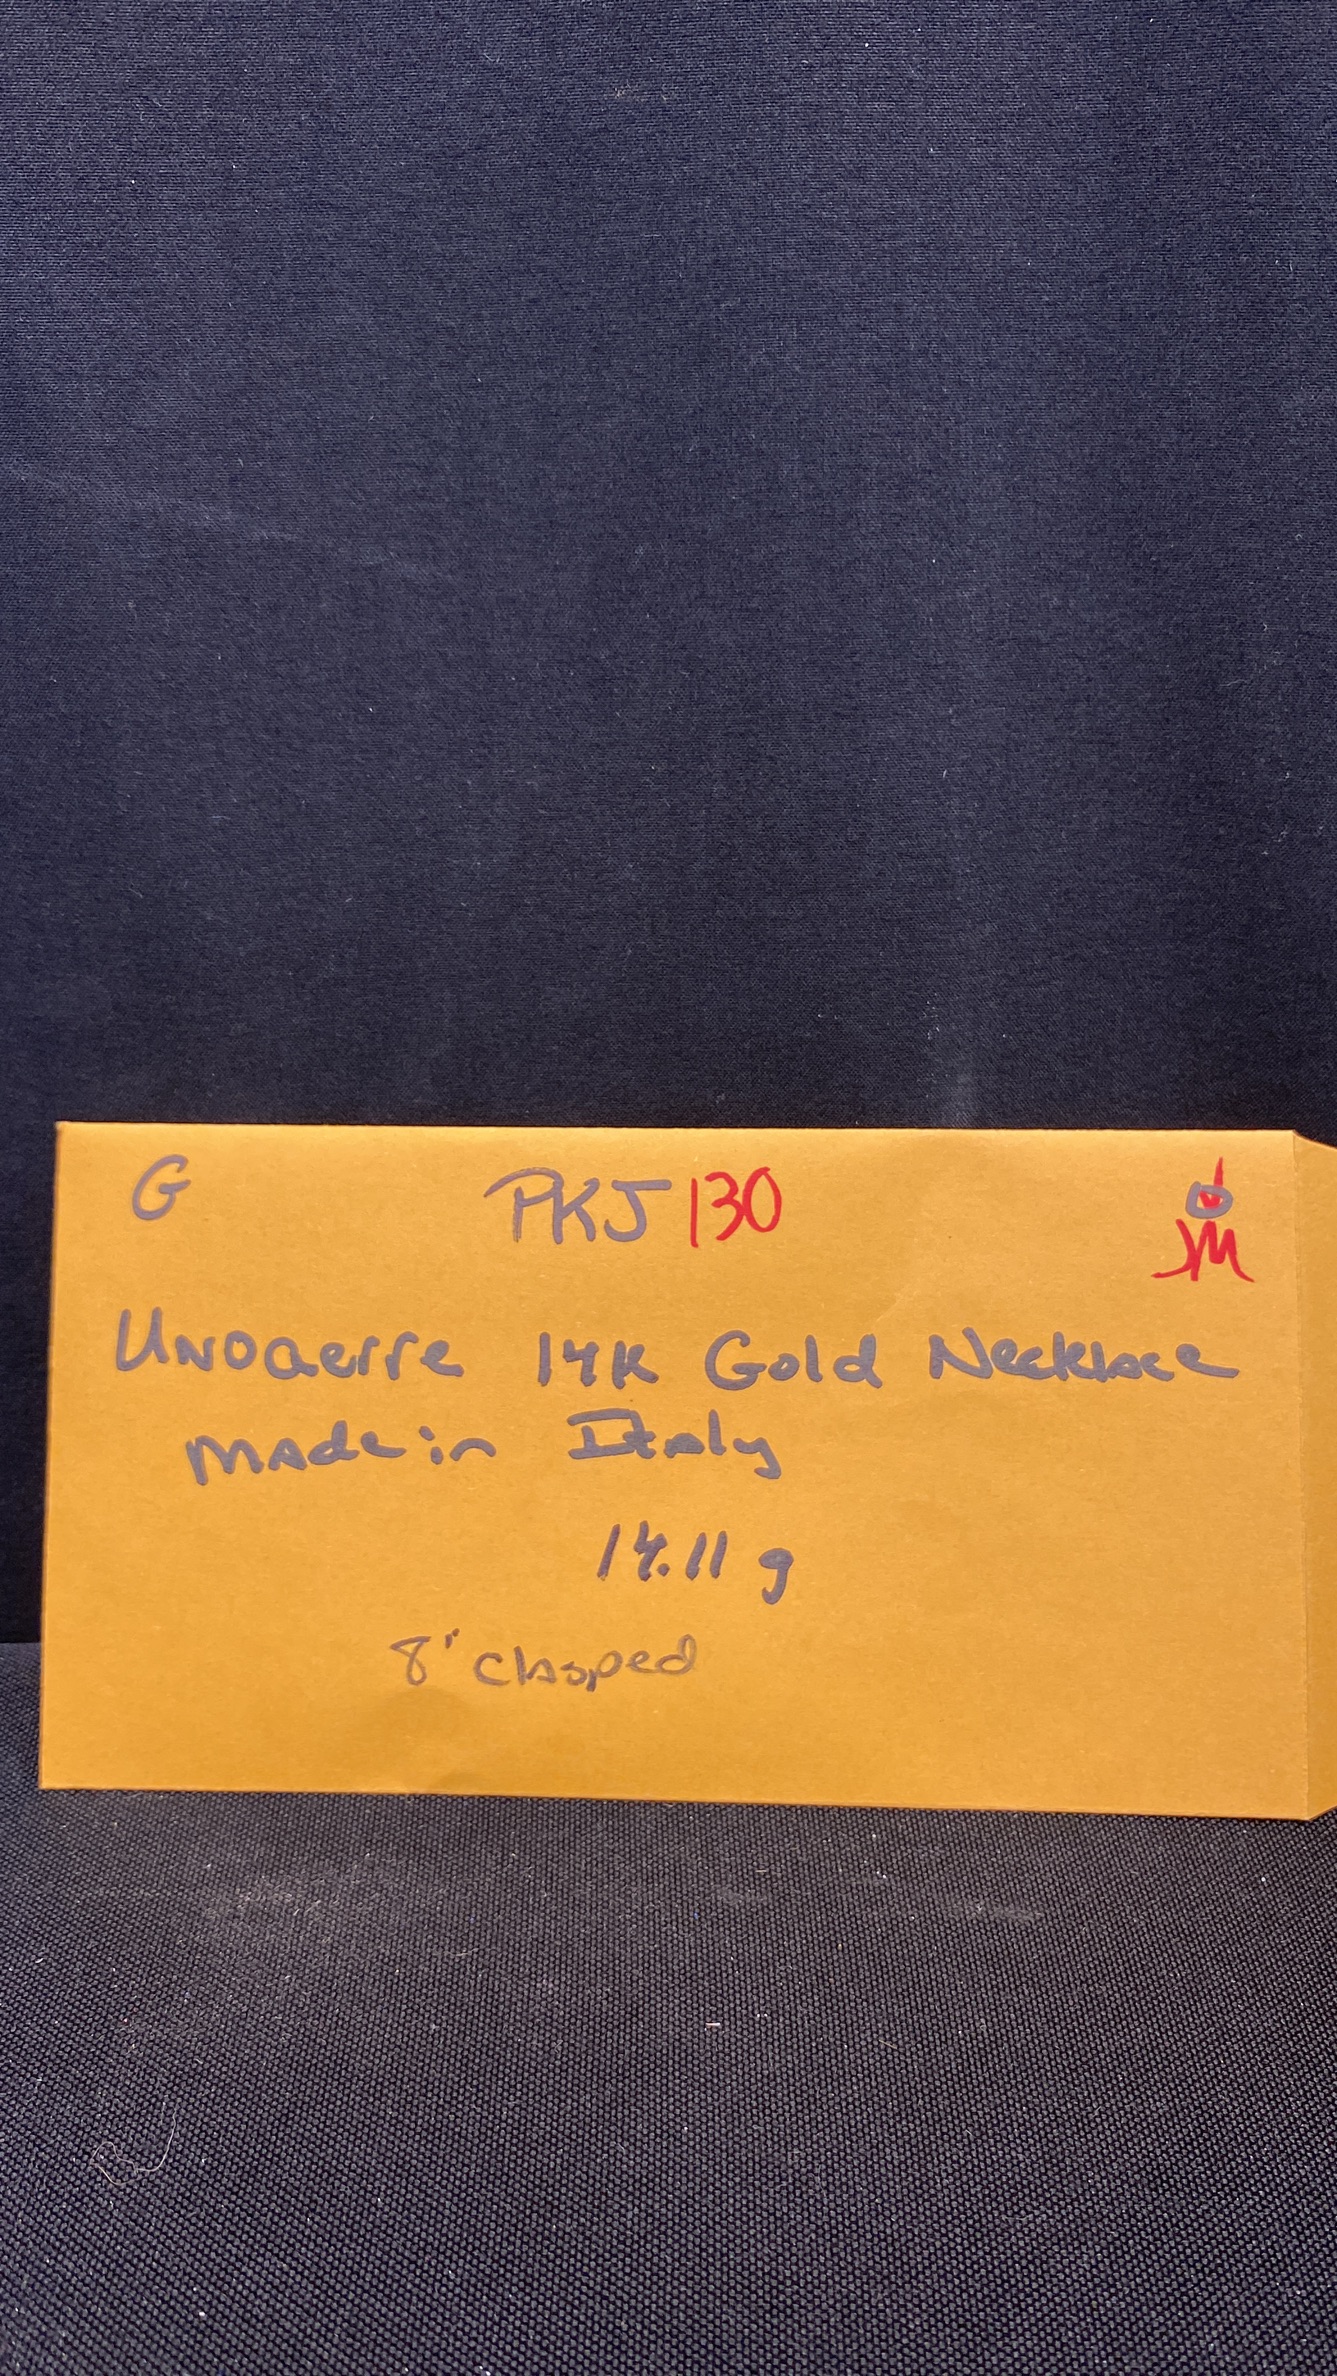 G PKJ 130
M
Unoaerre 14K Gold Necklace
made in Italy
14.11 g
8" clasped